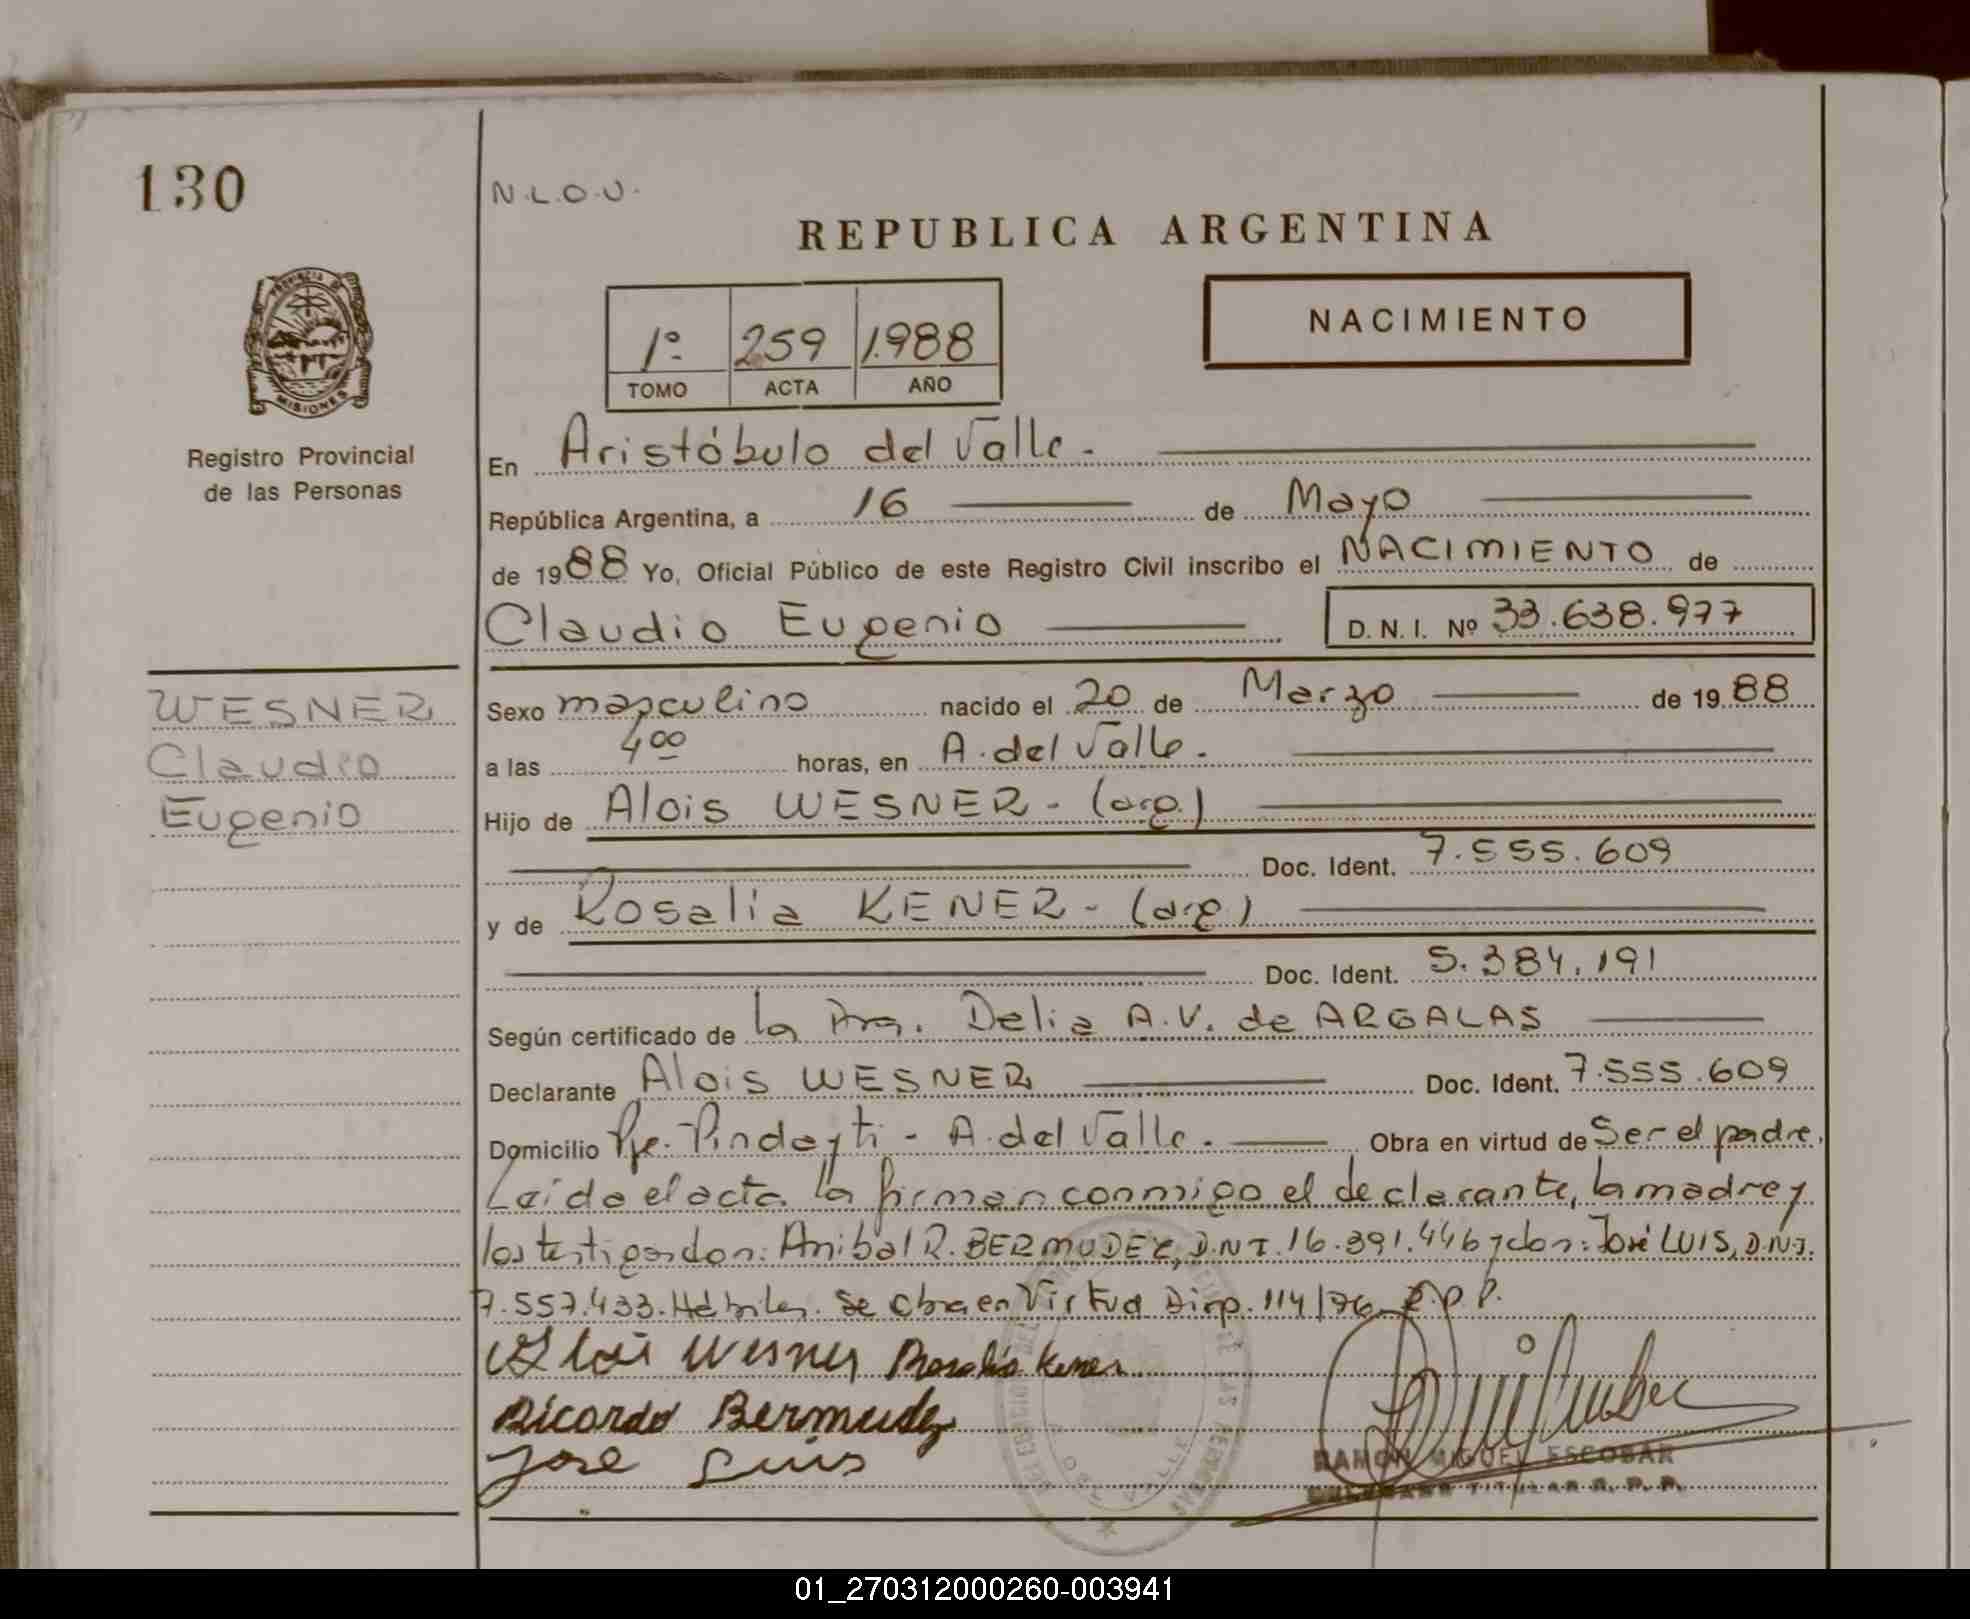 130
N.L.O.U.
REPUBLICA ARGENTINA
PROVINCIA D
MISIONES
Registro Provincial
de las Personas
1º 259 1.988
TOMO ACTA AÑO
NACIMIENTO
En Aristóbulo del Valle.-
República Argentina, a 16 de Mayo
de 1988 Yo, Oficial Público de este Registro Civil inscribo el NACIMIENTO de
Claudio Eugenio D.N.I. Nº 33.638.977
WESNER
Claudio
Eugenio
Sexo masculino nacido el 20 de Marzo de 1988
a las 4ºº horas, en A. del Valle.
Hijo de Alois WESNER - (arg.)
Doc. Ident. 7.555.609
y de Rosalia KENER - (arg.)
Doc. Ident. 5.384.191
Según certificado de la Dra. Delia A.V. de ARGALAS
Declarante Alois WESNER Doc. Ident. 7.555.609
Domicilio Pje. Pindayti - A. del Valle. Obra en virtud de Ser el padre.
Leída el acta la firman conmigo el declarante, la madre y
los testigos don: Anibal R. BERMUDEZ, D.N.I. 16.391.446 y don: José LUIS, D.N.I.
7.557.433. Hábiles. Se Obra en Virtud Disp. 114/76 R.P.P.
Alois Wesner Rosalia Kener
Ricardo Bermudez
Jose Luis
RAMON MIGUEL ESCOBAR
TITULAR R. P. P.
01_270312000260-003941